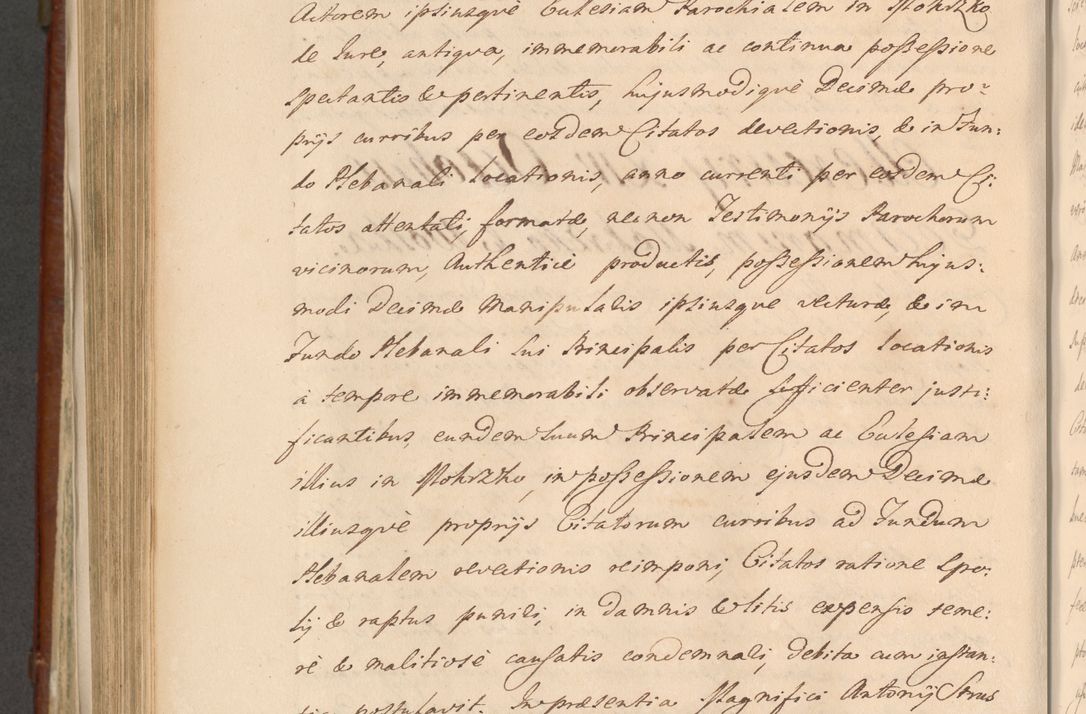 Actorem ipsiusquè Ecclesiam Parochialem in Mokrzko
de Jure, antiqua, immemorabili ac continua possessione
spectantis & pertinentis, hujusmodiquè Decimæ pro-
prijs curribus per eosdem Citatos devectionis, & in Fun-
do Plebanali locationis, anno currenti per eosdem Ci-
tatos attentati, formatæ, nec non Testimonijs Parochorum
vicinorum, Authenticè productis, possessionem hujus-
modi Decimæ Manipularis ipsiusque vecturæ, & in
Fundo Plebanali sui Principalis per Citatos locationis
à tempore immemorabili observatæ sufficienter justi-
ficantibus, eundem suum Principalem ac Ecclesiam
illius in Mokrzko, in possessionem ejusdem Decimæ
illiusquè proprijs Citatorum curribus ad Fundum
Plebanalem revectionis reimponi, Citatos ratione spo-
lij & raptus puniri, in damnis & litis expensis teme-
rè & malitiosè causatis condemnari, debita cum instan-
tia postulavit. In præsentia Magnifici Antonij Strus